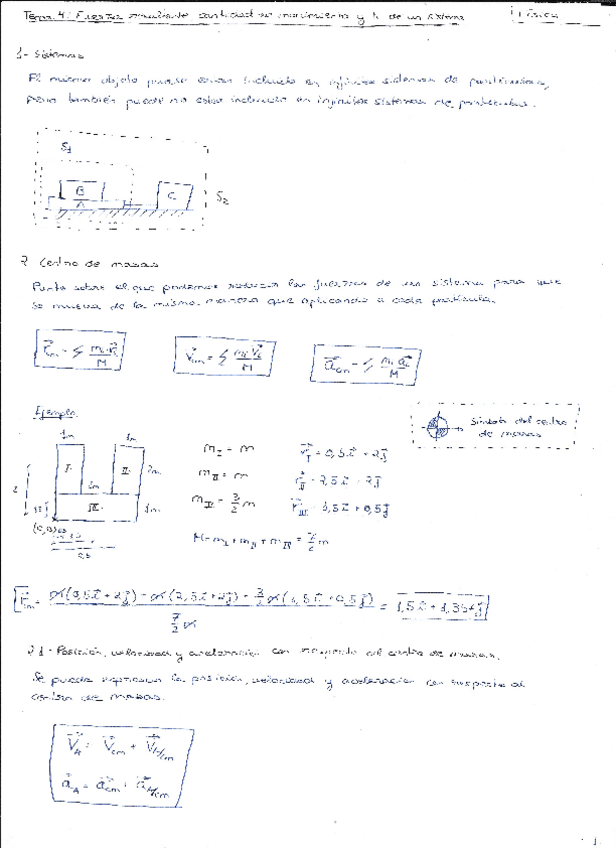 Tema 4: Fuerzas cantidad de movimiento y de un sistema
Física
1- Sistemas
El mismo objeto puede estar incluido en infinitos sistemas de partículas,
pero también puede no estar incluido en infinitos sistemas de partículas.
S₁
B
A
C
S₂
2 Centro de masas
Punto sobre el que podemos reducir las fuerzas de un sistema para que
se mueva de la misma manera que aplicando a cada partícula.
r⃗cm = Σ mᵢ r⃗ᵢ / M
v⃗cm = Σ mᵢ v⃗ᵢ / M
a⃗cm = Σ mᵢ a⃗ᵢ / M
Símbolo del centro
de masas
Ejemplo
1m
1m
I
II
2m
1m
III
1m
m_I = m
m_II = m
m_III = 3/2 m
M = m_I + m_II + m_III = 7/2 m
r⃗_I = 0,5i⃗ + 2j⃗
r⃗_II = 2,5i⃗ + 2j⃗
r⃗_III = 1,5i⃗ + 0,5j⃗
r⃗cm = m(0,5i⃗ + 2j⃗) + m(2,5i⃗ + 2j⃗) + 3/2 m(1,5i⃗ + 0,5j⃗) / 7/2 m = 1,5i⃗ + 1,357j⃗
2.1- Posición, velocidad y aceleración con respecto al centro de masas.
Se puede expresar la posición, velocidad y aceleración con respecto al
centro de masas.
V⃗_A = V⃗cm + V⃗_A/cm
a⃗_A = a⃗cm + a⃗_A/cm
1